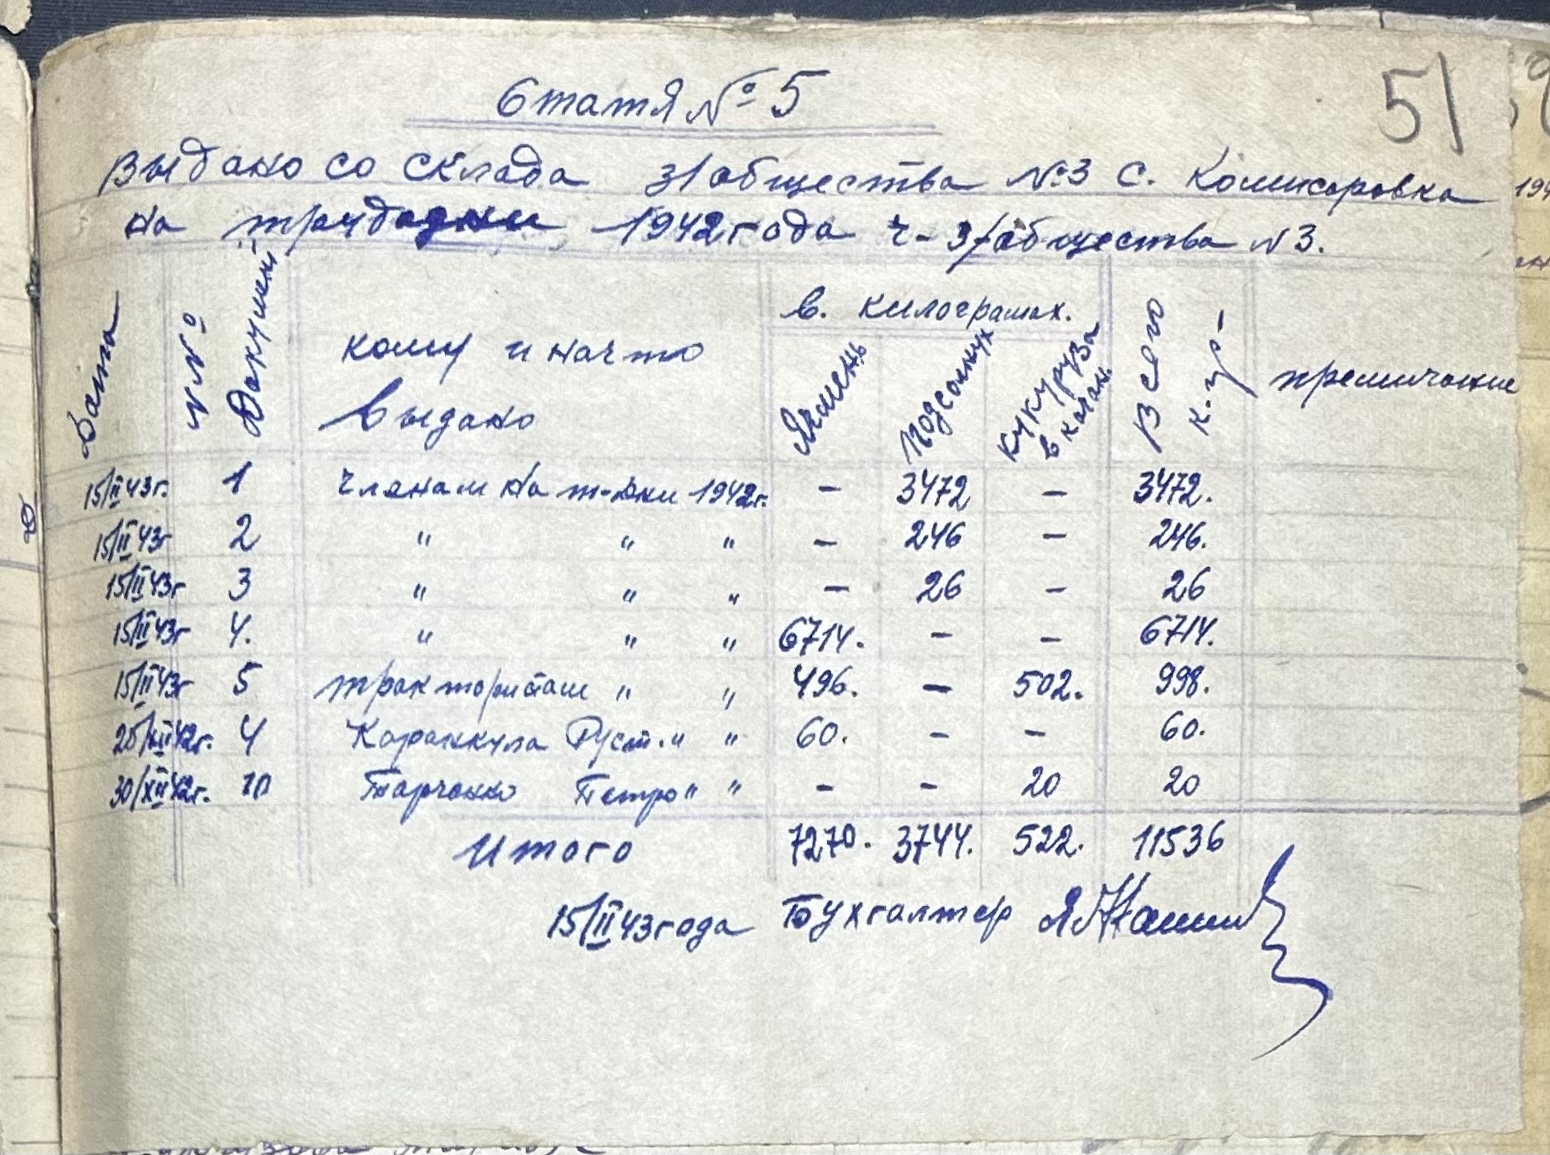 51
Статя № 5
Выдано со склада з/общества №3 с. Комисаровка
на трудодни 1942 года ч- з/общества №3.
Дата №№ Документ кому и на что выдано в. килограмах. Ячмень Подсолнух кукуруза в качан. Всего к-гр- премичание
15/II 43г. 1 членам на т-дни 1942г. – 3472 – 3472.
15/II 43г 2 " " " – 246 – 246.
15/II 43г 3 " " " – 26 – 26
15/II 43г 4. " " " 6714. – – 6714.
15/II 43г 5 трактористам " " 496. – 502. 998.
4 Караккула Руст. " " 60. – – 60.
30/XII 42г. 10 Тарченко Петро " " – – 20 20
Итого 7270. 3744. 522. 11536
15/II 43 года Бухгалтер